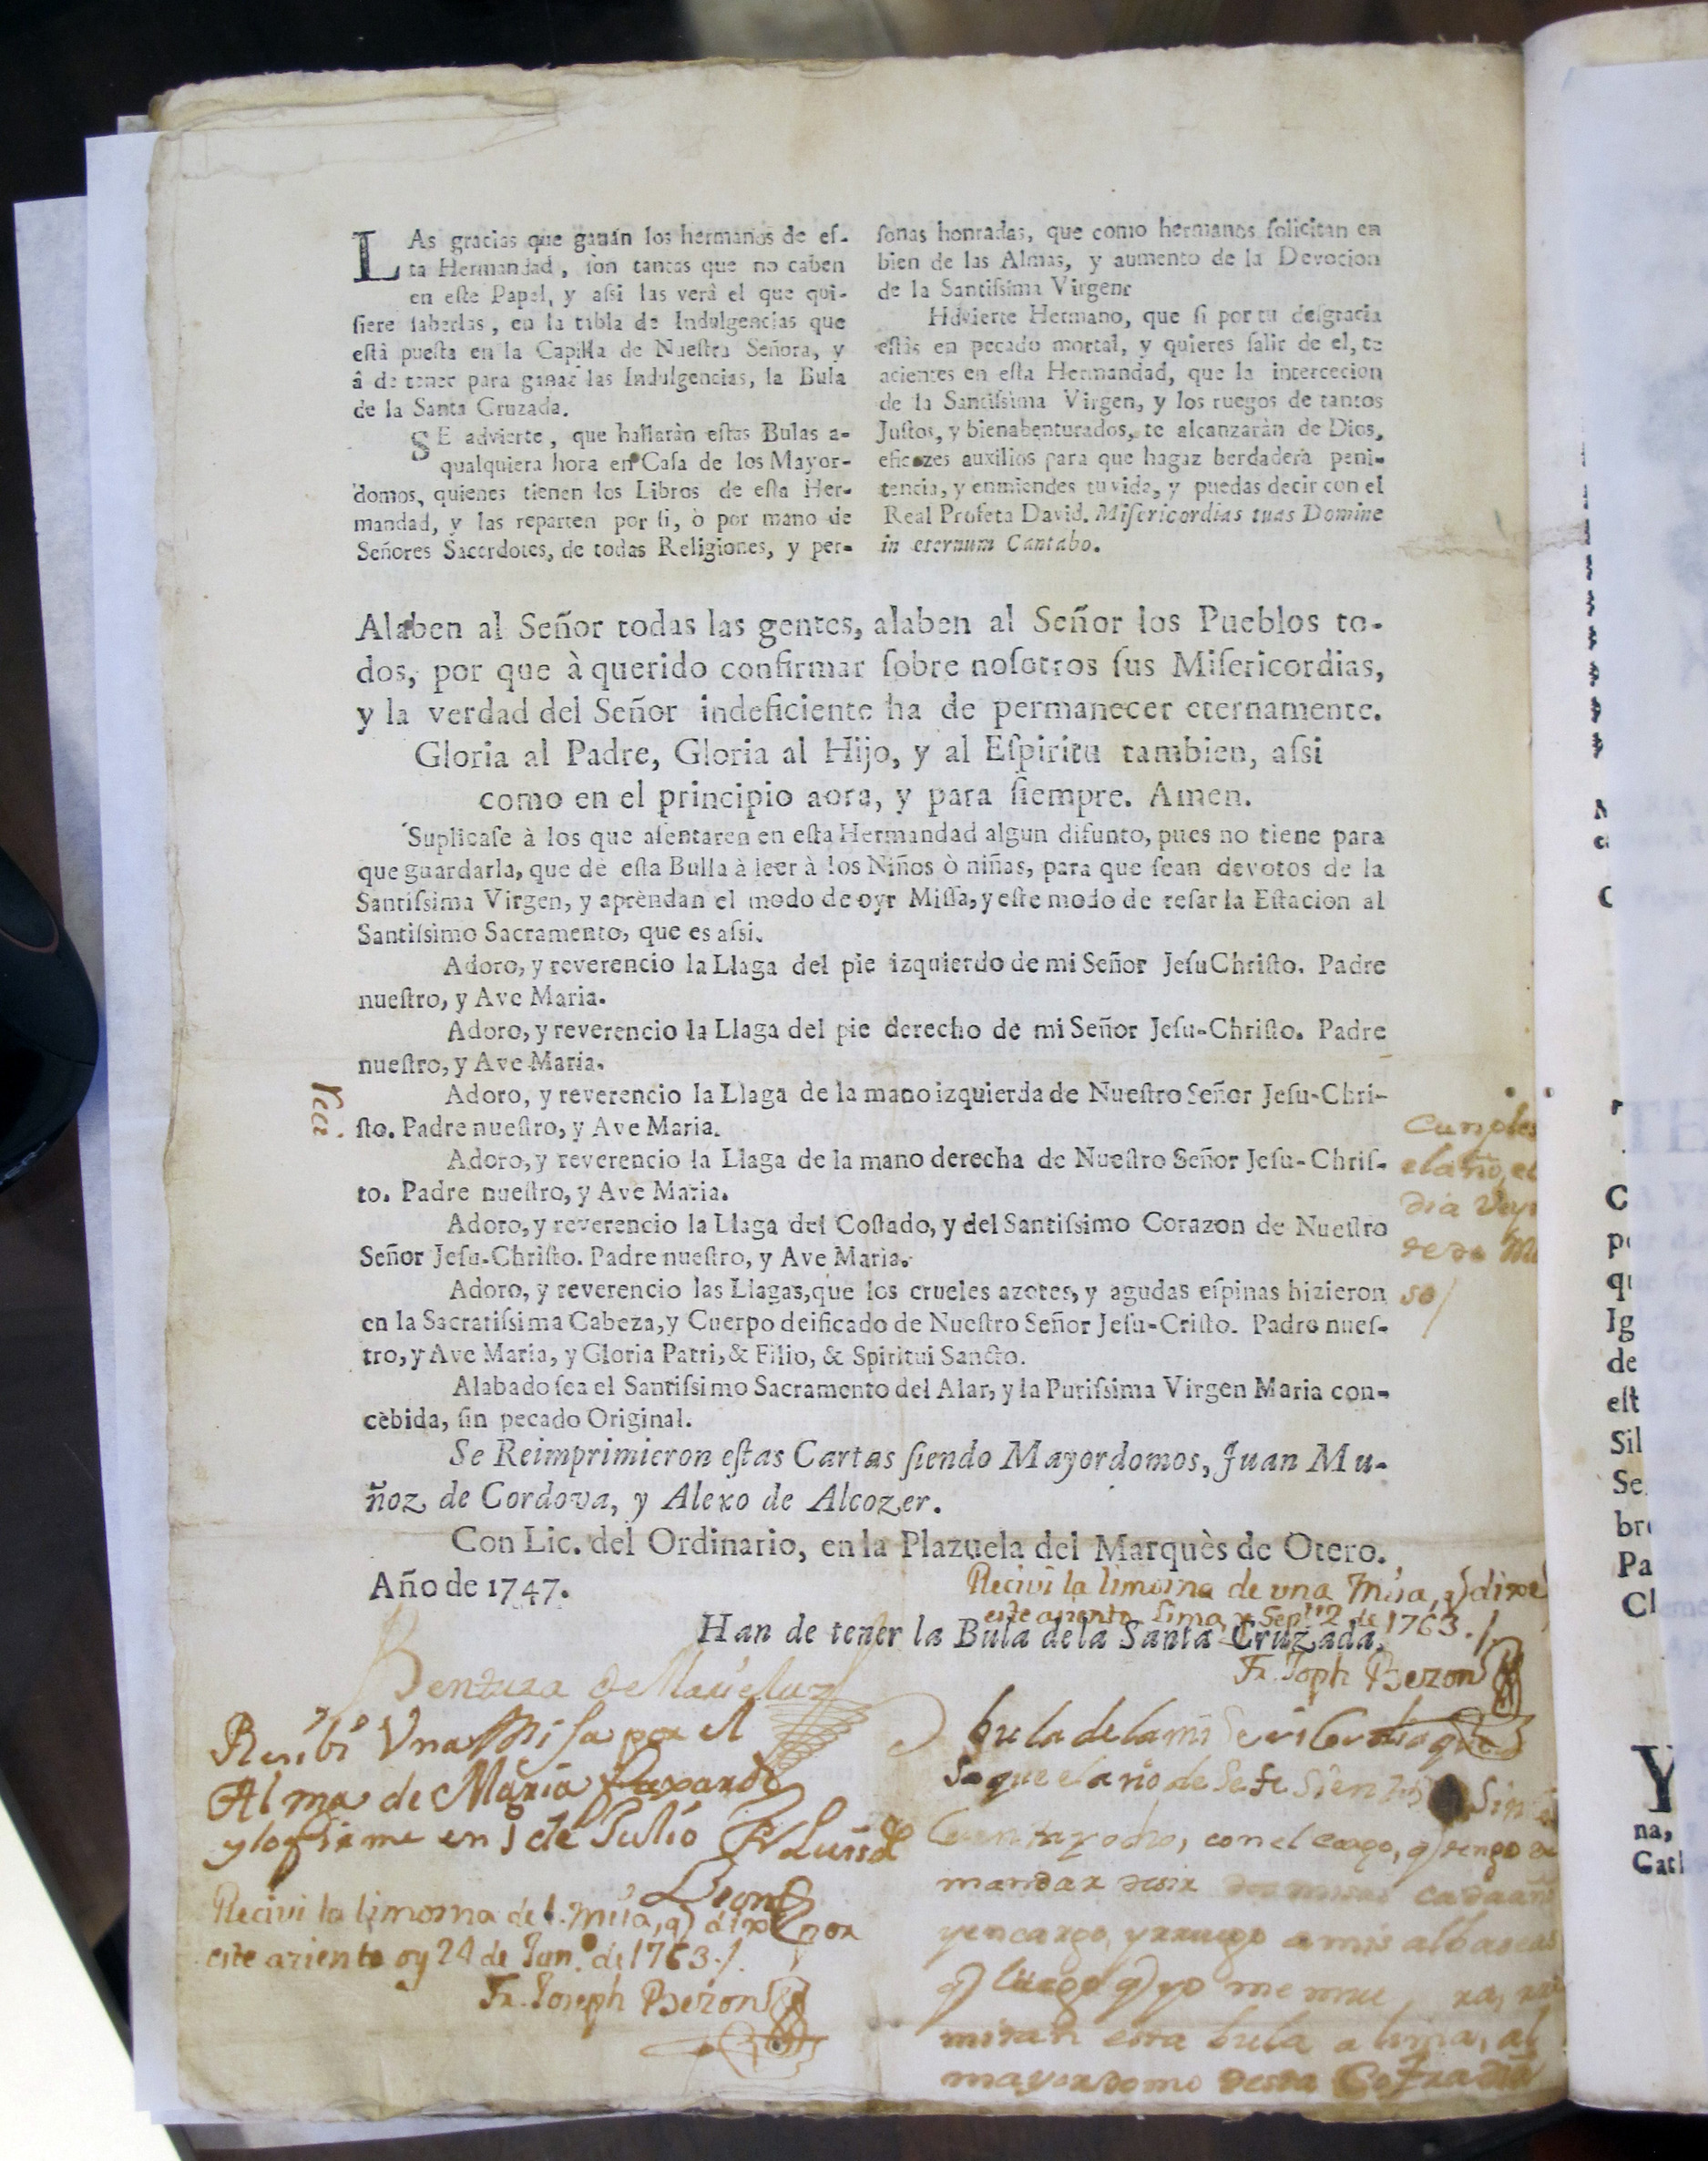 LAs gracias que ganán los hermanos de eſ-
ta Hermandad, ſon tantas que no caben
en eſte Papel, y aſsi las verâ el que qui-
ſiere ſaberlas, en la tabla de Indulgencias que
eſtâ pueſta en la Capilla de Nueſtra Señora, y
â de tener para ganar las Indulgencias, la Bula
de la Santa Cruzada.
SE advierte, que hallaràn eſtas Bulas a-
qualquiera hora en Caſa de los Mayor-
domos, quienes tienen los Libros de eſta Her-
mandad, y las reparten por ſi, ò por mano de
Señores Sacerdotes, de todas Religiones, y per-
ſonas honradas, que como hermanos ſolicitan en
bien de las Almas, y aumento de la Devocion
de la Santiſsima Virgen
Hdvierte Hermano, que ſi por tu deſgracia
eſtàs en pecado mortal, y quieres ſalir de el, te
acientes en eſta Hermandad, que la intercecion
de la Santiſsima Virgen, y los ruegos de tantos
Juſtos, y bienabenturados, te alcanzaràn de Dios,
eficazes auxilios para que hagaz berdadera peni-
tencia, y enmiendes tu vida, y puedas decir con el
Real Profeta David. Miſericordias tuas Domine
in eternum Cantabo.
Alaben al Señor todas las gentes, alaben al Señor los Pueblos to-
dos, por que à querido confirmar ſobre noſotros ſus Miſericordias,
y la verdad del Señor indeficiente ha de permanecer eternamente.
Gloria al Padre, Gloria al Hijo, y al Eſpiritu tambien, aſsi
como en el principio aora, y para ſiempre. Amen.
Suplicaſe à los que aſentaren en eſta Hermandad algun difunto, pues no tiene para
que guardarla, que dè eſta Bulla à leer à los Niños ò niñas, para que ſean devotos de la
Santiſsima Virgen, y aprèndan el modo de oyr Miſſa, y eſte modo de reſar la Eſtacion al
Santiſsimo Sacramento, que es aſsi.
Adoro, y reverencio la Llaga del pie izquierdo de mi Señor JeſuChriſto. Padre
nueſtro, y Ave Maria.
Adoro, y reverencio la Llaga del pie derecho de mi Señor Jeſu-Chriſto. Padre
nueſtro, y Ave Maria.
Adoro, y reverencio la Llaga de la mano izquierda de Nueſtro Señor Jeſu-Chri-
ſto. Padre nueſtro, y Ave Maria.
Adoro, y reverencio la Llaga de la mano derecha de Nueſtro Señor Jeſu-Chriſ-
to. Padre nueſtro, y Ave Maria.
Adoro, y reverencio la Llaga del Coſtado, y del Santiſsimo Corazon de Nueſtro
Señor Jeſu-Chriſto. Padre nueſtro, y Ave Maria.
Adoro, y reverencio las Llagas, que los crueles azotes, y agudas eſpinas hizieron
en la Sacratiſsima Cabeza, y Cuerpo deificado de Nueſtro Señor Jeſu-Criſto. Padre nueſ-
tro, y Ave Maria, y Gloria Patri, & Filio, & Spiritui Sancto.
Alabado ſea el Santiſsimo Sacramento del Alar, y la Puriſsima Virgen Maria con-
cèbida, ſin pecado Original.
Se Reimprimieron eſtas Cartas ſiendo Mayordomos, Juan Mu-
ñoz de Cordova, y Alexo de Alcozer.
Con Lic. del Ordinario, en la Plazuela del Marquès de Otero.
Año de 1747.
Han de tener la Bula de la Santa Cruzada.
Cumples
el año, el
dia
so
Recivi la limosna de una Misa, q dixe
este aciento Lima y Sept.e 2 de 1763.
Fr. Joph Bezon
Bentura de
Resibi Una Misa por el
Alma de Maria
y lo firme en 1 de Julio Fr Luis de
Leon
Recivi la limosna de 1. Misa, q dixe por
este aziento oy 24 de Jun.o de 1763.
Fr. Joseph Bezon
bula de la miSericordia que
Saque el año de Sete Sientos Sin
Cuenta y ocho, con el cargo, q tengo de
mandar desir dos misas cada año
y encargo, y rruego a mis albaseas
q luego q yo me mue ra, rre
mitan esta bula a lima, al
mayordomo desta Cofradia